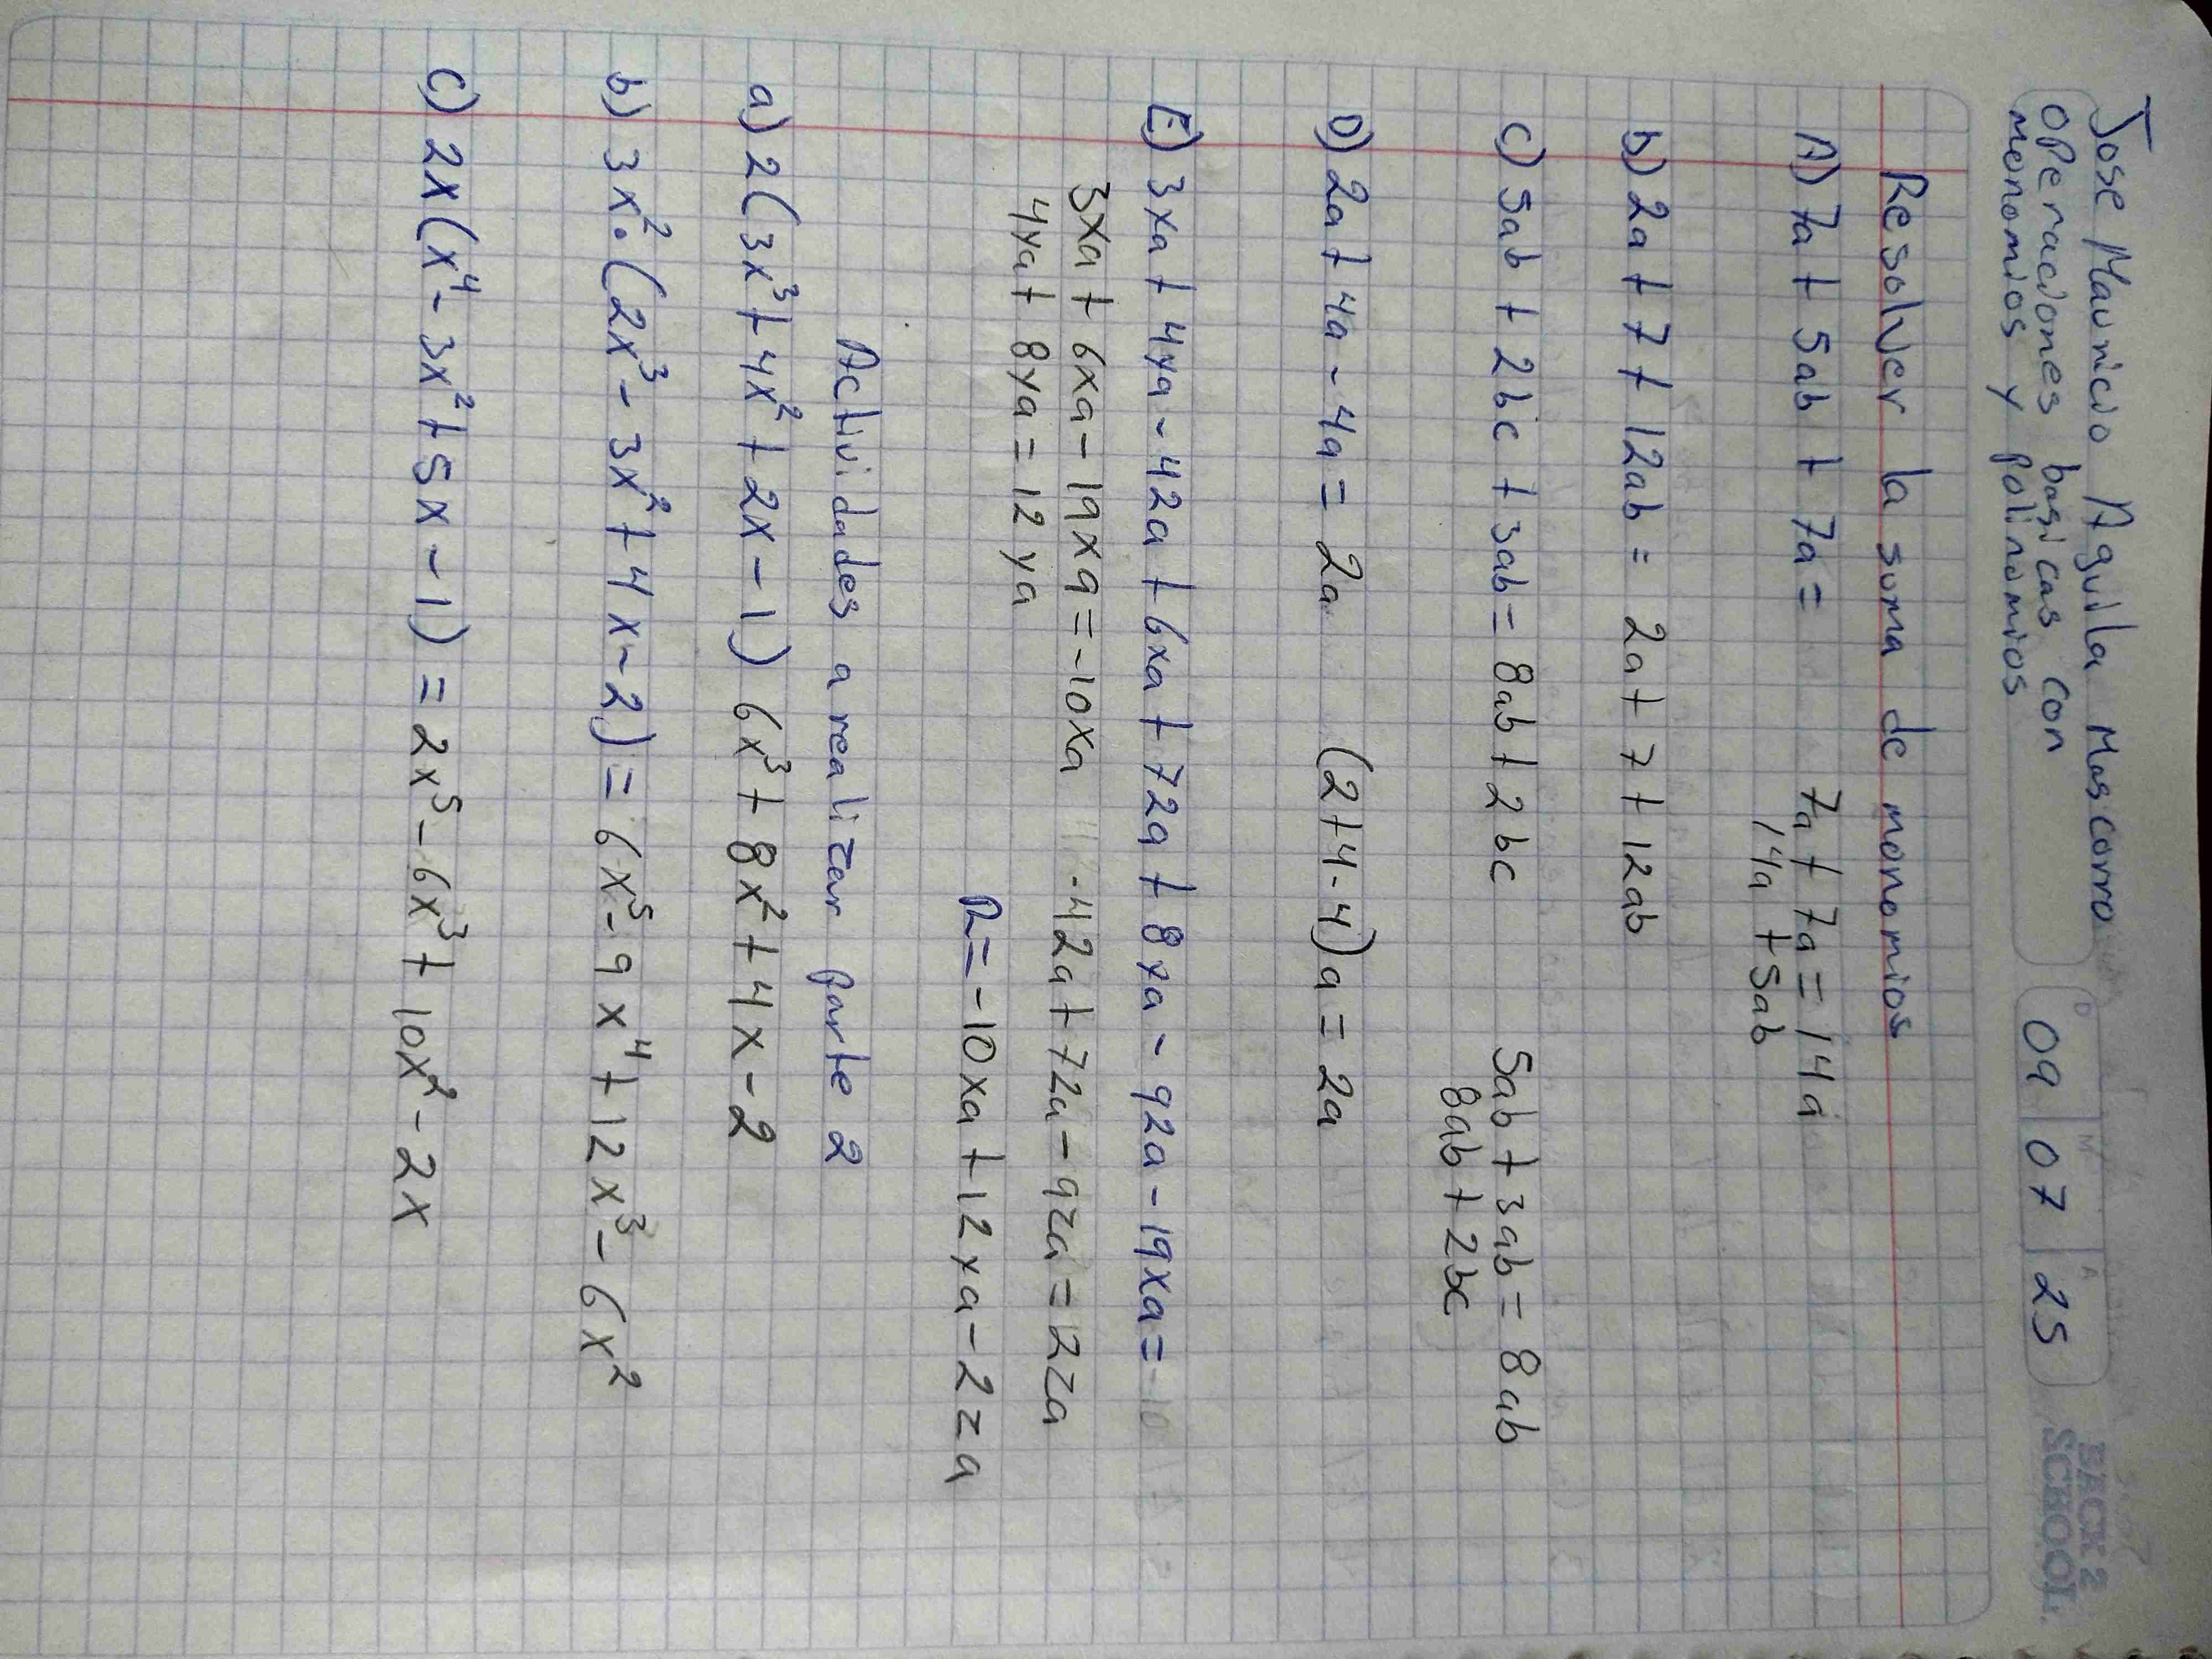 Jose Mauricio Aguila Mascorro
Operaciones basicas con
monomios y polinomios
D M A
09 07 25
BACK 2
SCHOOL
Resolver la suma de monomios
A) 7a + 5ab + 7a = 7a + 7a = 14a
14a + 5ab
b) 2a + 7 + 12ab = 2a + 7 + 12ab
c) 5ab + 2bc + 3ab = 8ab + 2bc 5ab + 3ab = 8ab
8ab + 2bc
D) 2a + 4a - 4a = 2a (2+4-4)a = 2a
E) 3xa + 4ya - 4za + 6xa + 7za + 8ya - 9za - 19xa =
3xa + 6xa - 19xa = -10xa -4za + 7za - 9za = 12za
4ya + 8ya = 12ya
R = -10xa + 12ya - 2za
Actividades a realizar parte 2
a) 2(3x³ + 4x² + 2x - 1) 6x³ + 8x² + 4x - 2
b) 3x² · (2x³ - 3x² + 4x - 2) = 6x⁵ - 9x⁴ + 12x³ - 6x²
c) 2x(x⁴ - 3x² + 5x - 1) = 2x⁵ - 6x³ + 10x² - 2x